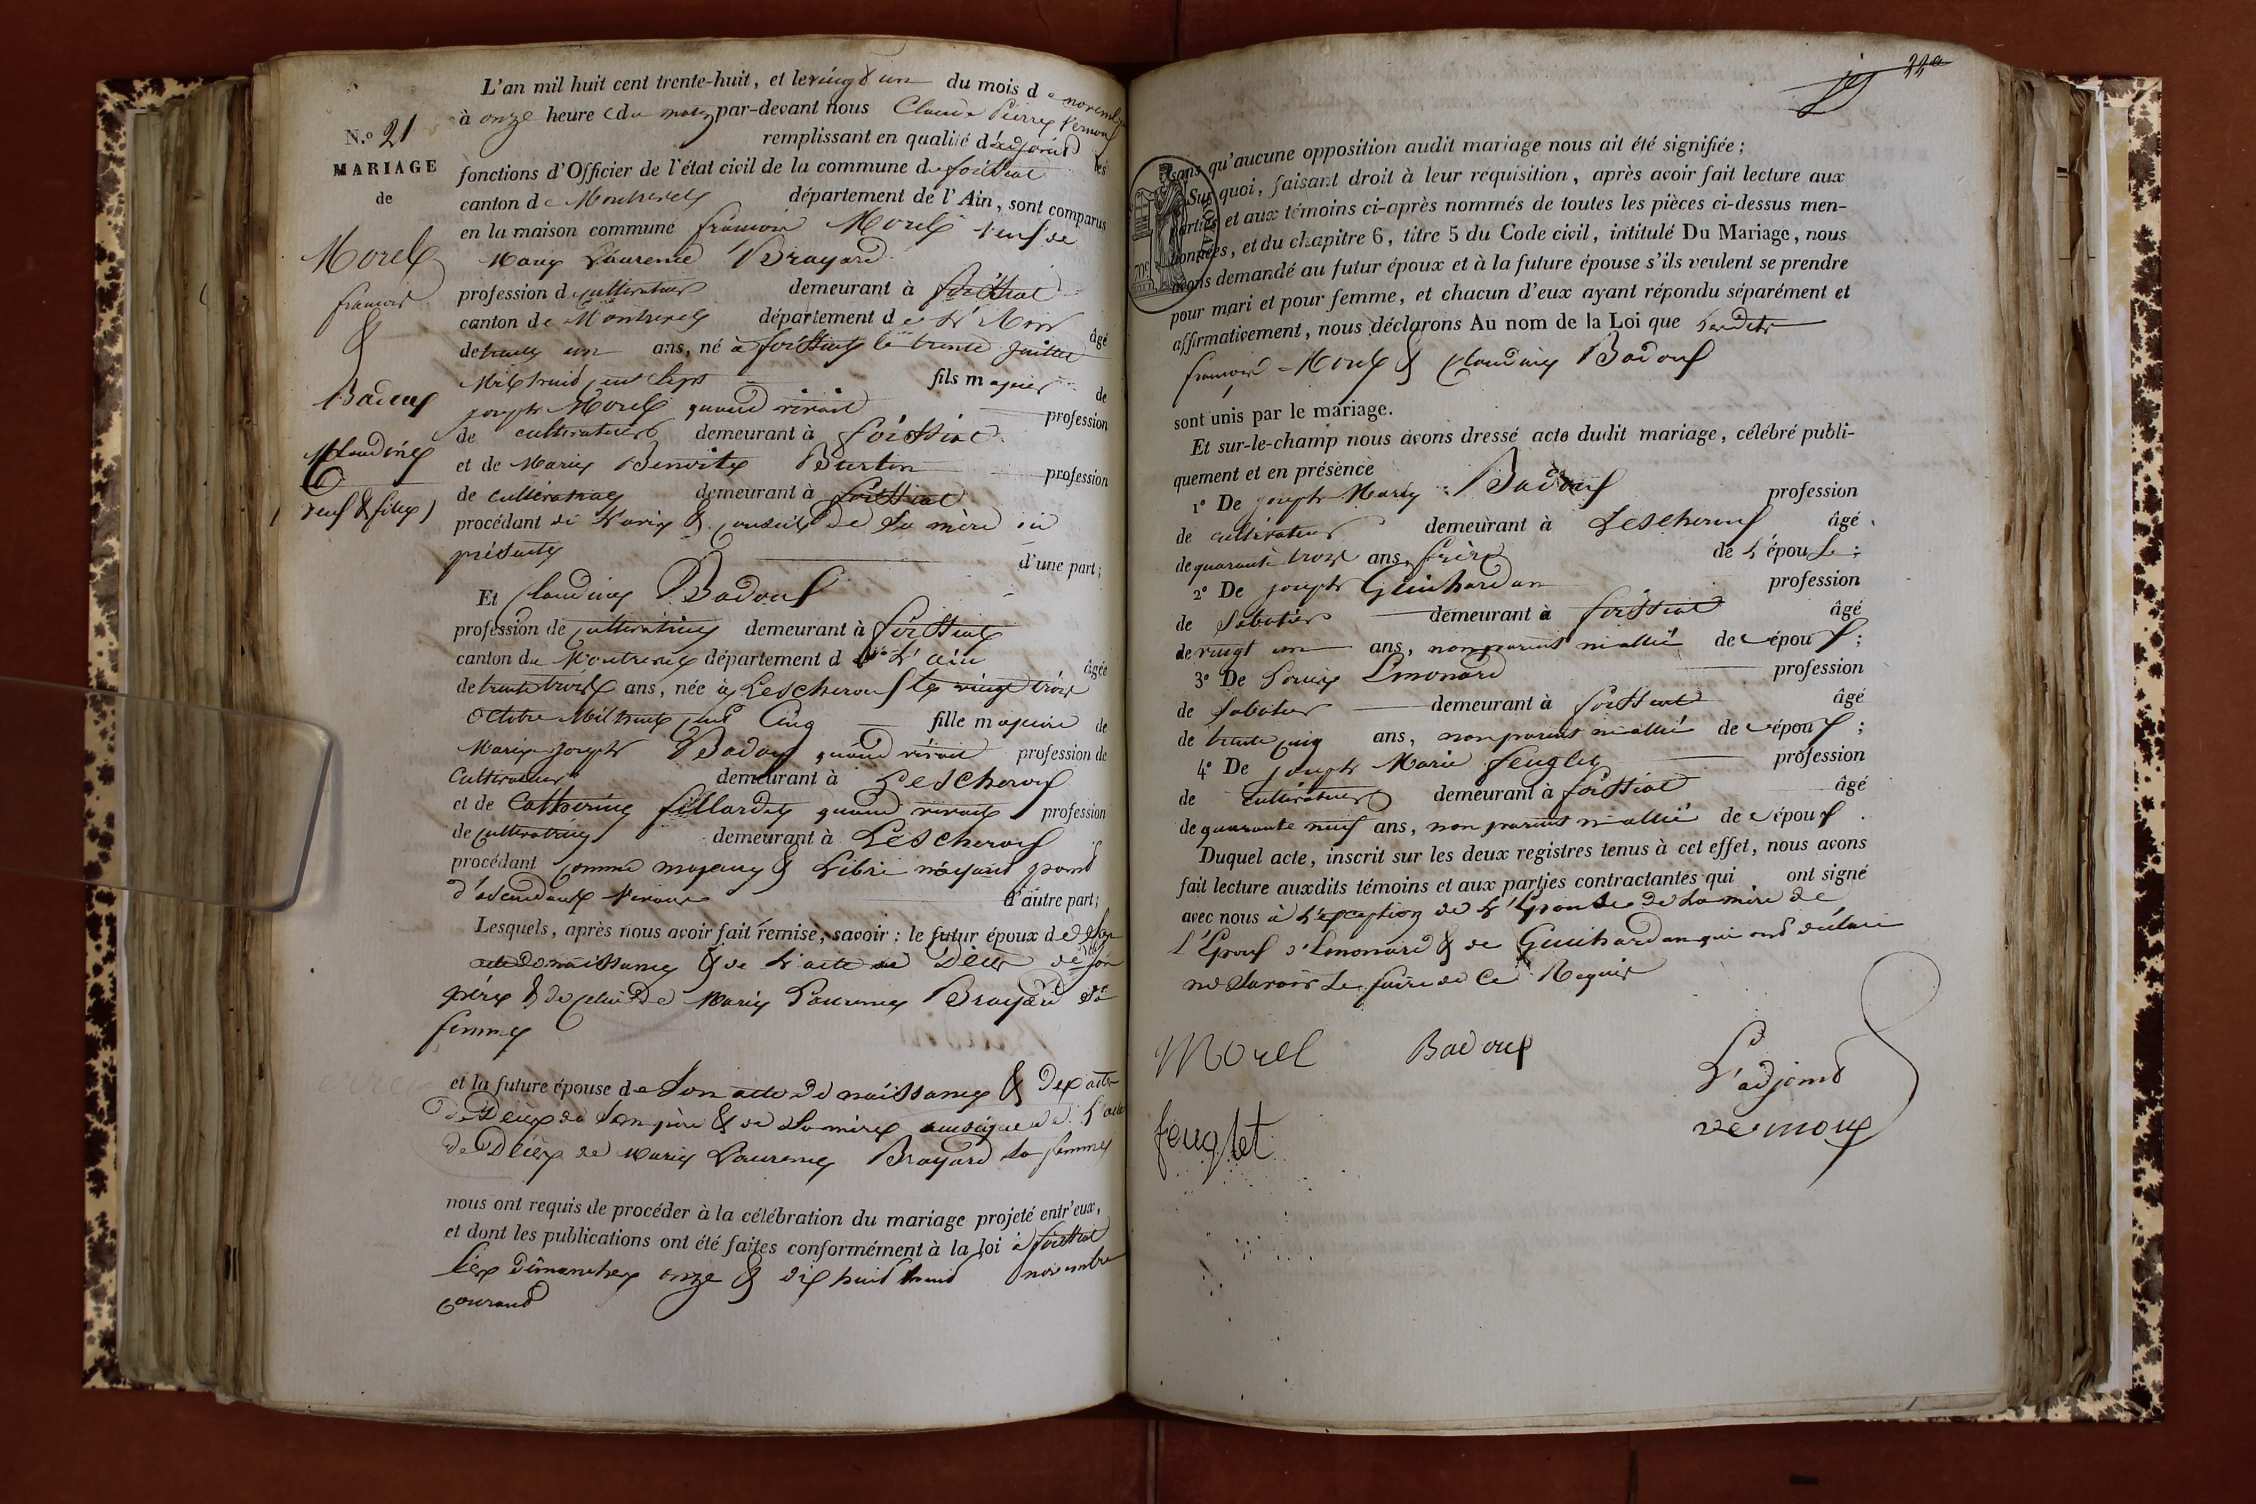 N.º 21
MARIAGE
de
Morel
francois
&
Badouf
Claudine
(veuf & fille)
L'an mil huit cent trente-huit, et le vingt un du mois de novembre
à onze heure du matin par-devant nous Claude Pierre Vernoux
remplissant en qualité d'adjoint les
fonctions d'Officier de l'état civil de la commune de foissiat
canton de Montrevel département de l'Ain, sont comparus
en la maison commune francois Morel veuf de
Marie Laurence Brayard
profession de cultivateur demeurant à foissiat
canton de Montrevel département de l'Ain âgé
de trente un ans, né à foissiat le trente juillet
Mil huit cent sept fils majeur de
joseph Morel quand vivait profession
de cultivateur demeurant à foissiat
et de Marie Benoite Burtin profession
de cultivatrice demeurant à foissiat
procédant de l'avis & conseil de sa mère ici
présente d'une part;
Et Claudine Badouf
profession de cultivatrice demeurant à foissiat
canton de Montrevel département de l'ain âgée
de trente trois ans, née à Lescheroux le vingt trois
octobre Mil huit cent cinq fille majeure de
Marie joseph Badouf quand vivait profession de
cultivateur demeurant à Lescheroux
et de Catherine fillardet quand vivait profession
de cultivatrice demeurant à Lescheroux
procédant comme majeure & libre n'ayant point
d'ascendants vivant d'autre part;
Lesquels, après nous avoir fait remise, savoir: le futur époux de son
acte de naissance & de l'acte de décès de son
père & de celui de Marie Laurence Brayard sa
femme
et la future épouse de son acte de naissance & des actes
de décès de son père & de sa mère de l'acte
de décès de Marie Laurence Brayard sa femme
nous ont requis de procéder à la célébration du mariage projeté entr'eux,
et dont les publications ont été faites conformément à la loi à foissiat
les dimanches onze & dix huit novembre
courant
sans qu'aucune opposition audit mariage nous ait été signifiée;
Sur quoi, faisant droit à leur réquisition, après avoir fait lecture aux
parties et aux témoins ci-après nommés de toutes les pièces ci-dessus men-
tionnées, et du chapitre 6, titre 5 du Code civil, intitulé Du Mariage, nous
avons demandé au futur époux et à la future épouse s'ils veulent se prendre
pour mari et pour femme, et chacun d'eux ayant répondu séparément et
affirmativement, nous déclarons Au nom de la Loi que lesdits
francois Morel & Claudine Badouf
sont unis par le mariage.
Et sur-le-champ nous avons dressé acte dudit mariage, célébré publi-
quement et en présence
1º De joseph Marie Badouf profession
de cultivateur demeurant à Lescheroux âgé
de quarante trois ans, frère de l'épouse;
2º De joseph Guichardan profession
de sabotier demeurant à foissiat âgé
de vingt un ans, non parent ni allié de l'époux;
3º De Louis Limonard profession
de sabotier demeurant à foissiat âgé
de trente cinq ans, non parent ni allié de l'époux;
4º De joseph Marie feuglet profession
de cultivateur demeurant à foissiat âgé
de quarante neuf ans, non parent ni allié de l'époux.
Duquel acte, inscrit sur les deux registres tenus à cet effet, nous avons
fait lecture auxdits témoins et aux parties contractantes qui ont signé
avec nous à l'exception de l'Epouse de la mère de
l'Epoux de Limonard & de Guichardan qui ont déclaré
ne savoir le faire de ce Requis
Morel Badouf
L'adjoint
vernoux
feuglet